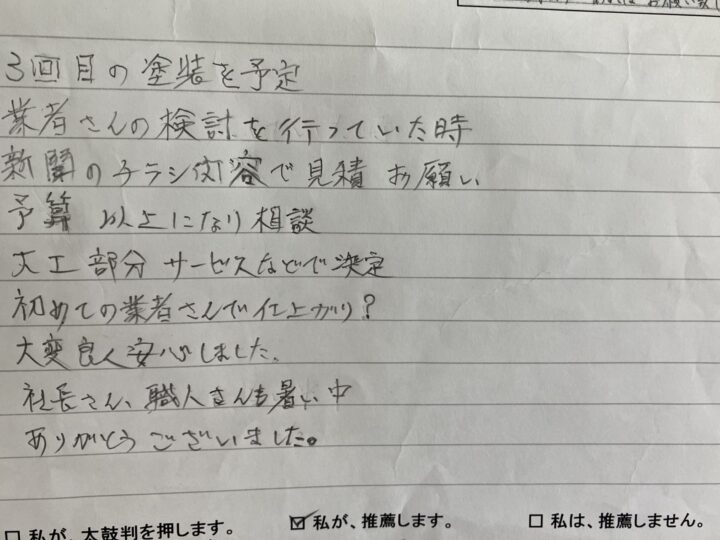 お願い致し
3回目の塗装を予定
業者さんの検討を行っていた時
新聞のチラシ内容で見積お願い
予算 以上になり相談
大工部分 サービスなどで決定
初めての業者さんで仕上がり?
大変良く安心しました。
社長さん、職人さんも暑い中
ありがとうございました。
□ 私が、太鼓判を押します。 ☑ 私が、推薦します。 □ 私は、推薦しません。